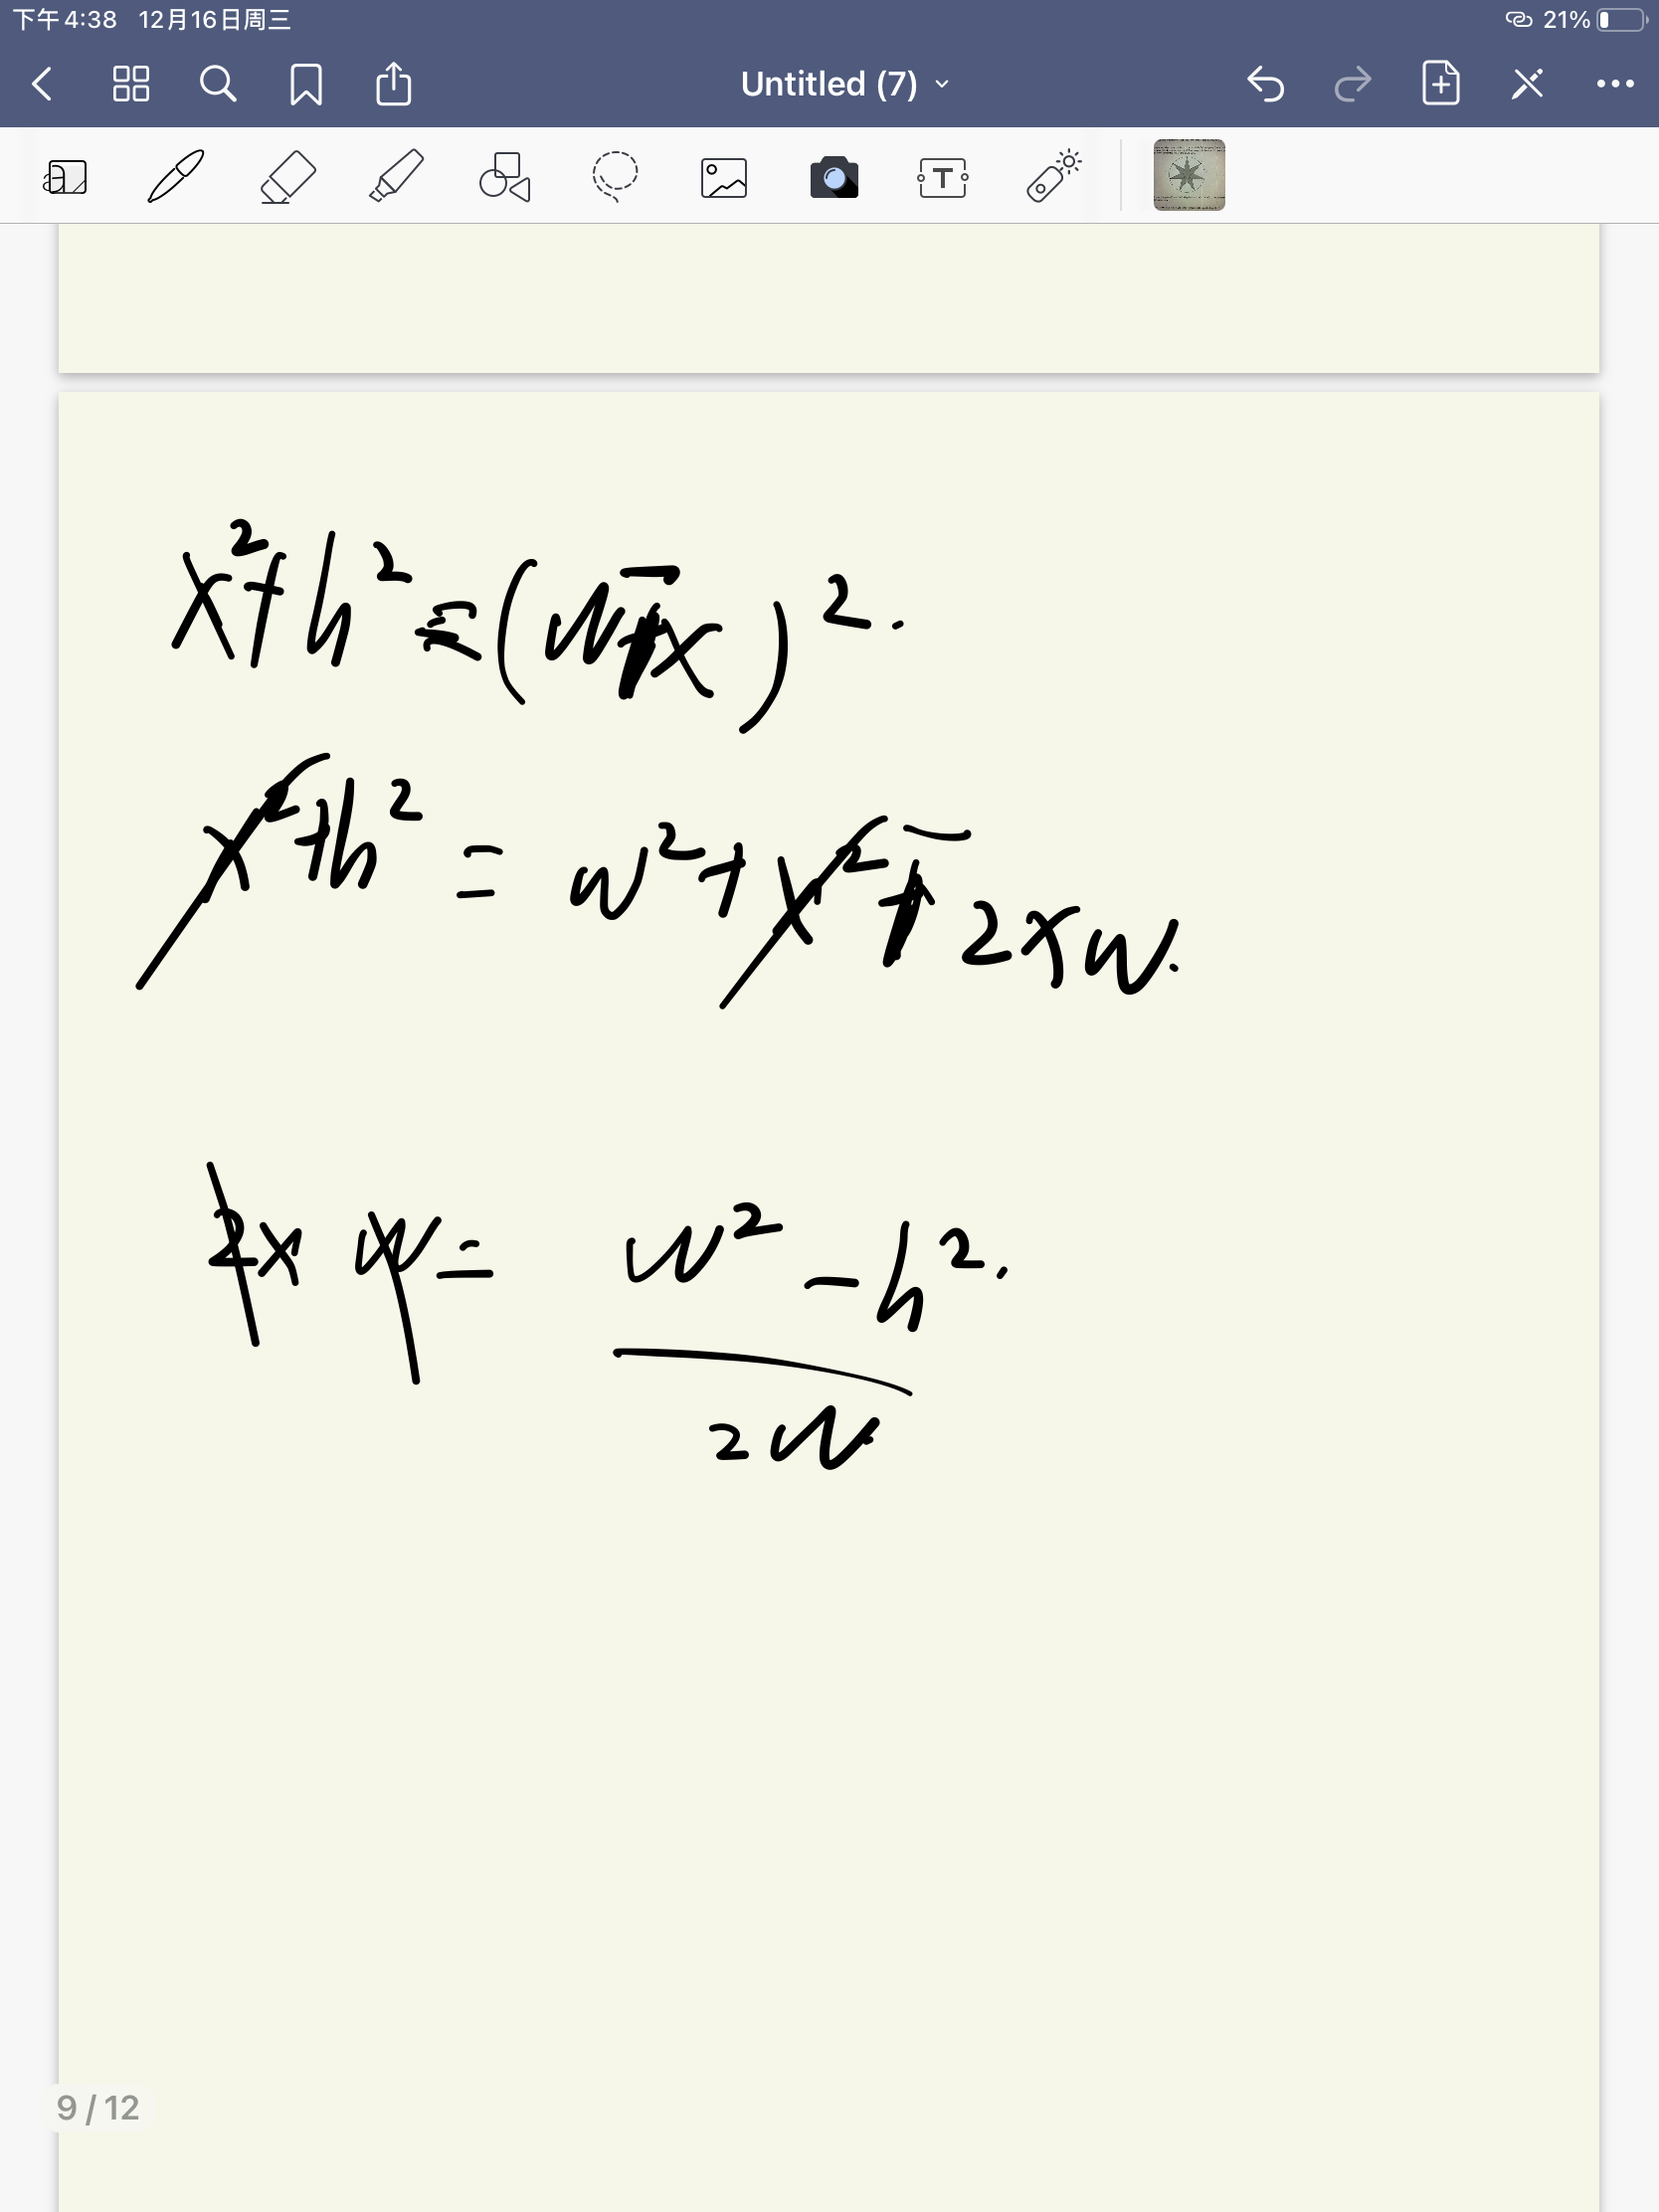 下午4:38 12月16日周三 21%
Untitled (7)
T
x²+h²=(w-x)².
x²+h²=w²+x²-2xw.
2xw=w²-h².
2w.
9 / 12